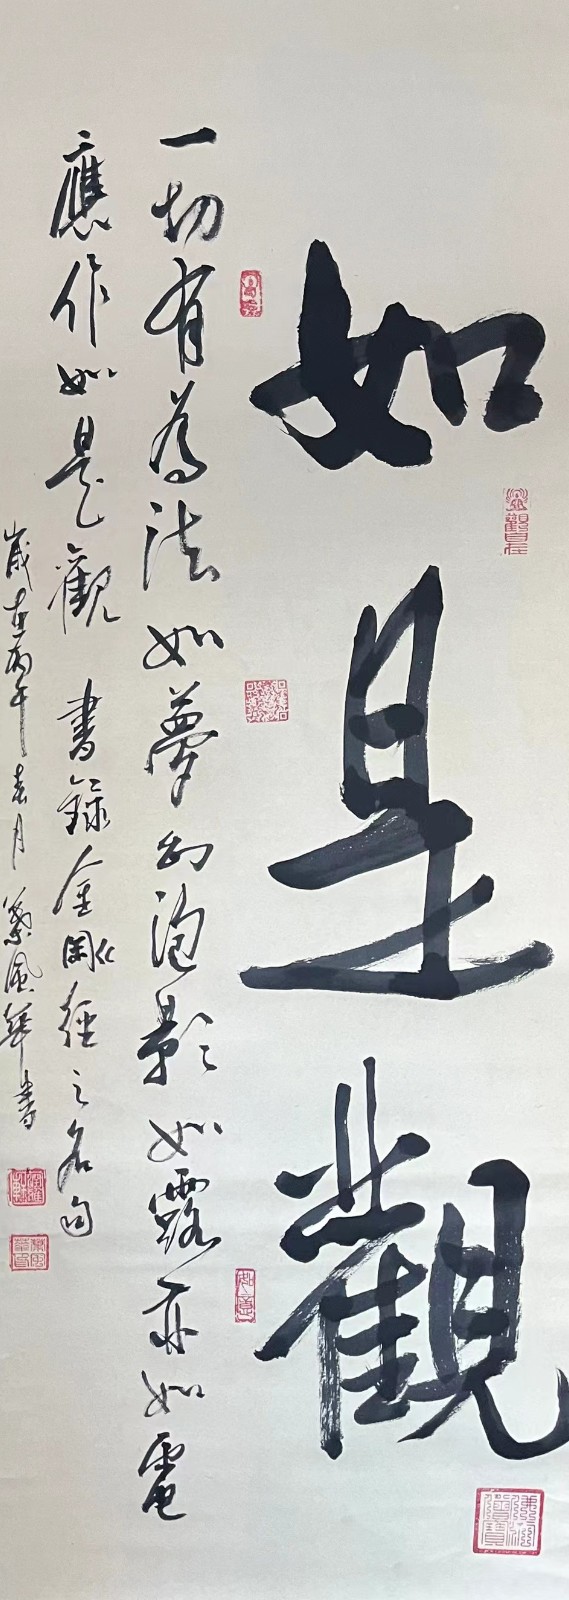 如是觀
一切有為法如夢幻泡影如露亦如電
應作如是觀 書録金剛經之名句
歲在丙午春月 風華書
觀自在
如意